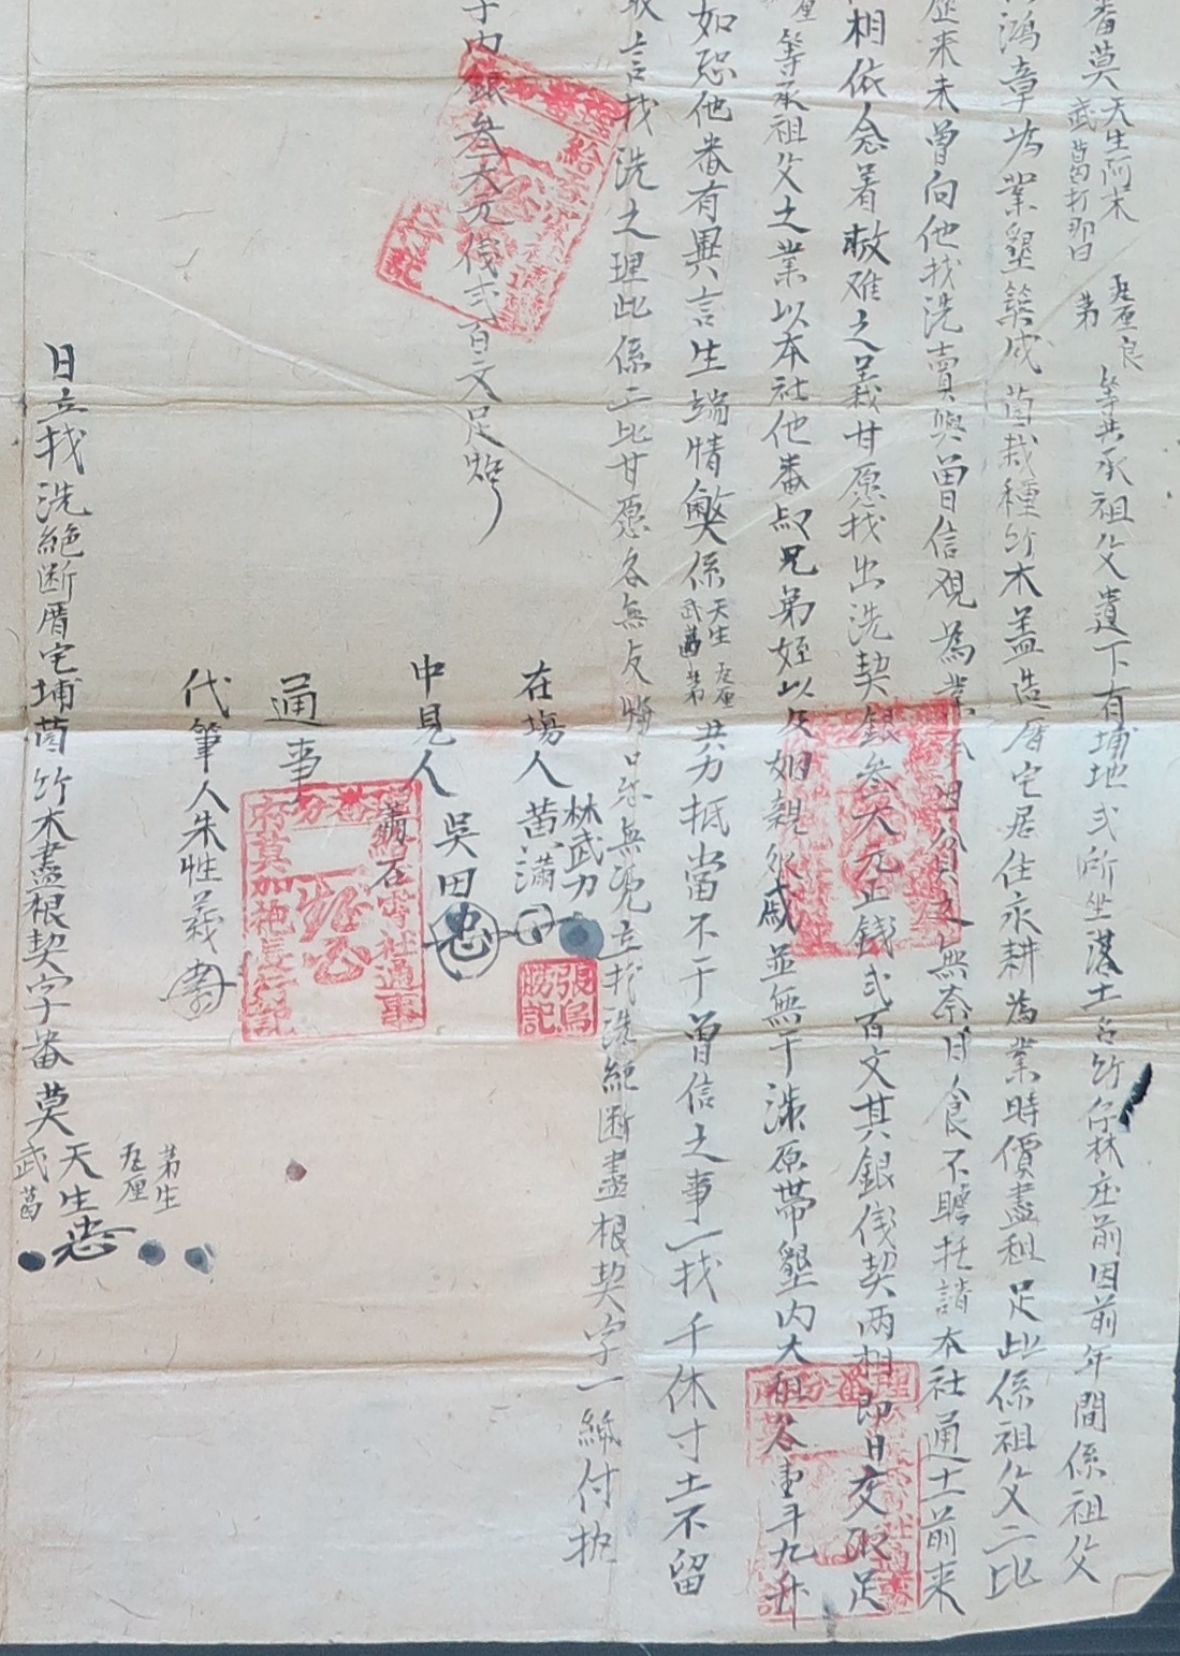 番莫天生阿末武葛打那曰 弟 等共承祖父遺下有埔地弍所坐落土名竹仔林庄前因前年間係祖父
鴻章為業墾築成茵栽種竹木盖造厝宅居住永耕為業時價盡租足此係祖父二比
歷來未曾向他找洗賣與曾信觀為業 無奈日食不贍托請本社通土前来
相依念着救难之義甘愿找出洗契銀叁大元正錢弍百文其銀伐契两相即日交收足
等承祖父之業以本社他番叔兄弟姪以及姻親外戚並無干涉原帶墾内大租谷壹斗九升
如恐他番有異言生端情弊係天生武葛弟 共力抵當不干曾信之事一找千休寸土不留
言找洗之理此係二比甘愿各無反悔口恐無凭立找洗絕断盡根契字一紙付执
字内銀叁大元伐弍百文足炤
在場人 林武力 黃滿
張烏勝記
中見人 吳田
通事 蕭石
宵社通事
代筆人朱性義
日立找洗絕断厝宅埔茵竹木盡根契字番莫天生武葛 弟生